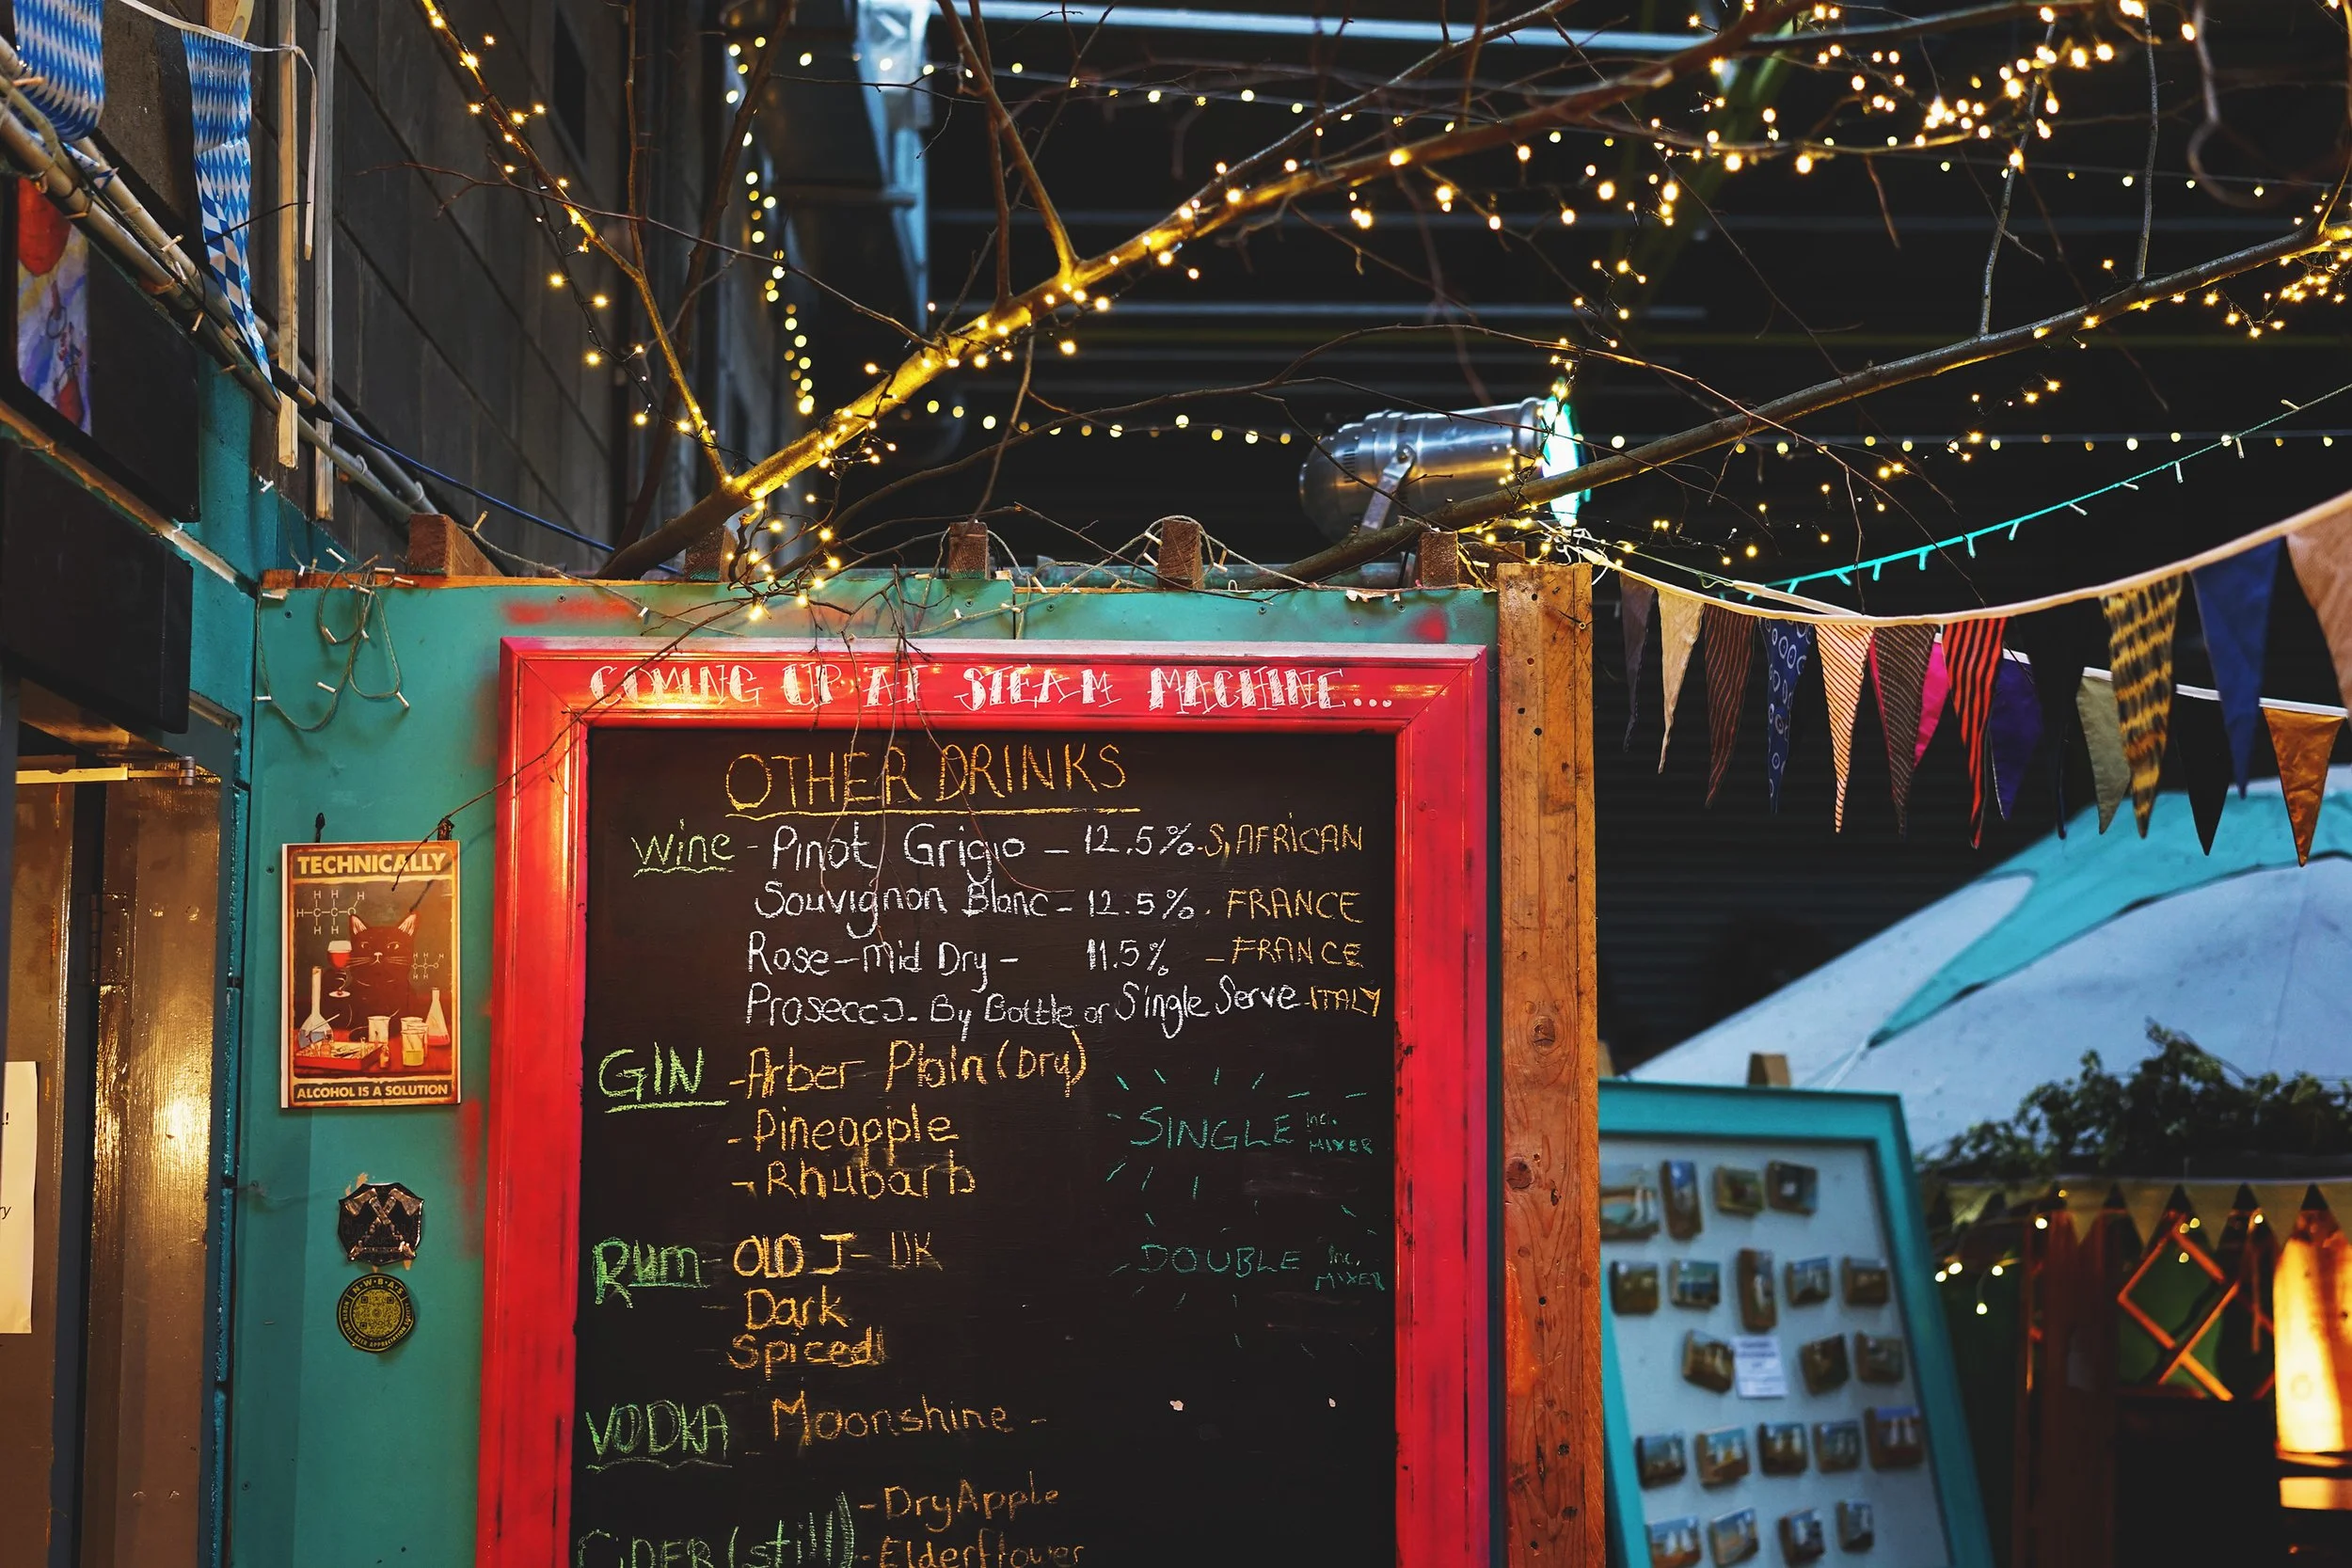 COMING UP AT STEAM MACHINE...
OTHER DRINKS
Wine - Pinot Grigio - 12.5% - S, AFRICAN
Souvignon Blanc - 12.5% - FRANCE
Rose - Mid Dry - 11.5% - FRANCE
Prosecco - By Bottle or Single Serve - ITALY
GIN - Arber Plain (Dry)
- Pineapple
- Rhubarb
SINGLE Inc. MIXER
RUM - OLD J - UK
Dark
Spiced
DOUBLE Inc. MIXER
VODKA Moonshine -
CIDER (still) - Dry Apple
- Elderflower
TECHNICALLY
ALCOHOL IS A SOLUTION